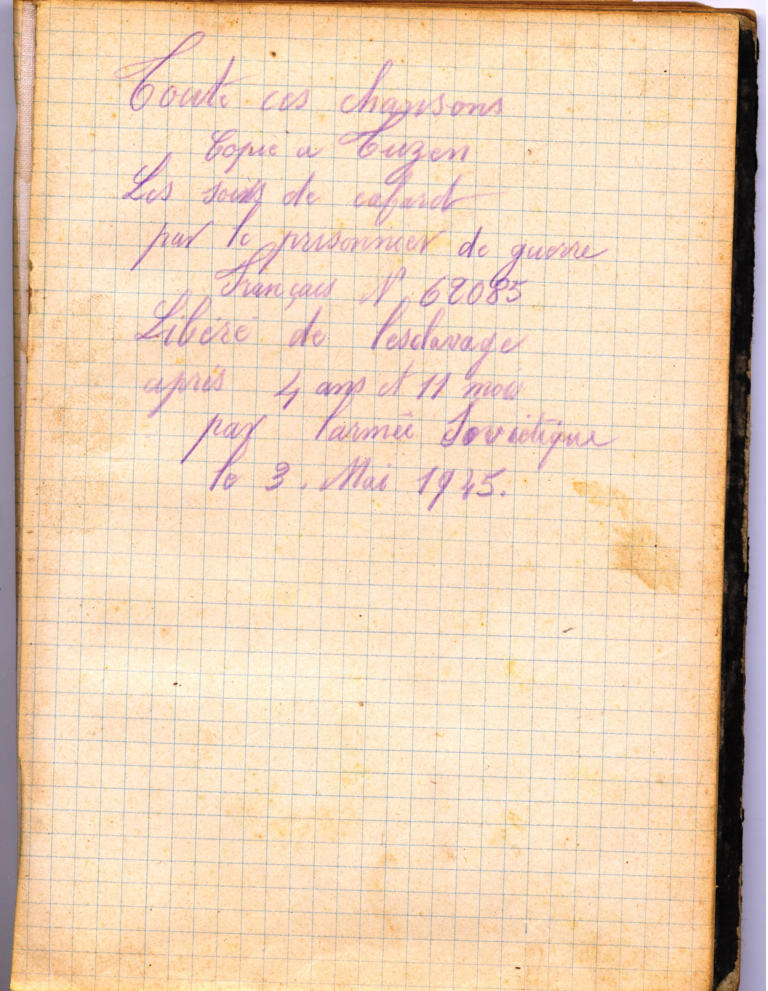 Toute ces chansons
Copie a Tuzen
Les soirs de cafard
par le prisonnier de guerre
Français N° 62085
Libéré de l'esclavage
après 4 ans et 11 mois
par l'armée Soviétique
le 3. Mai 1945.